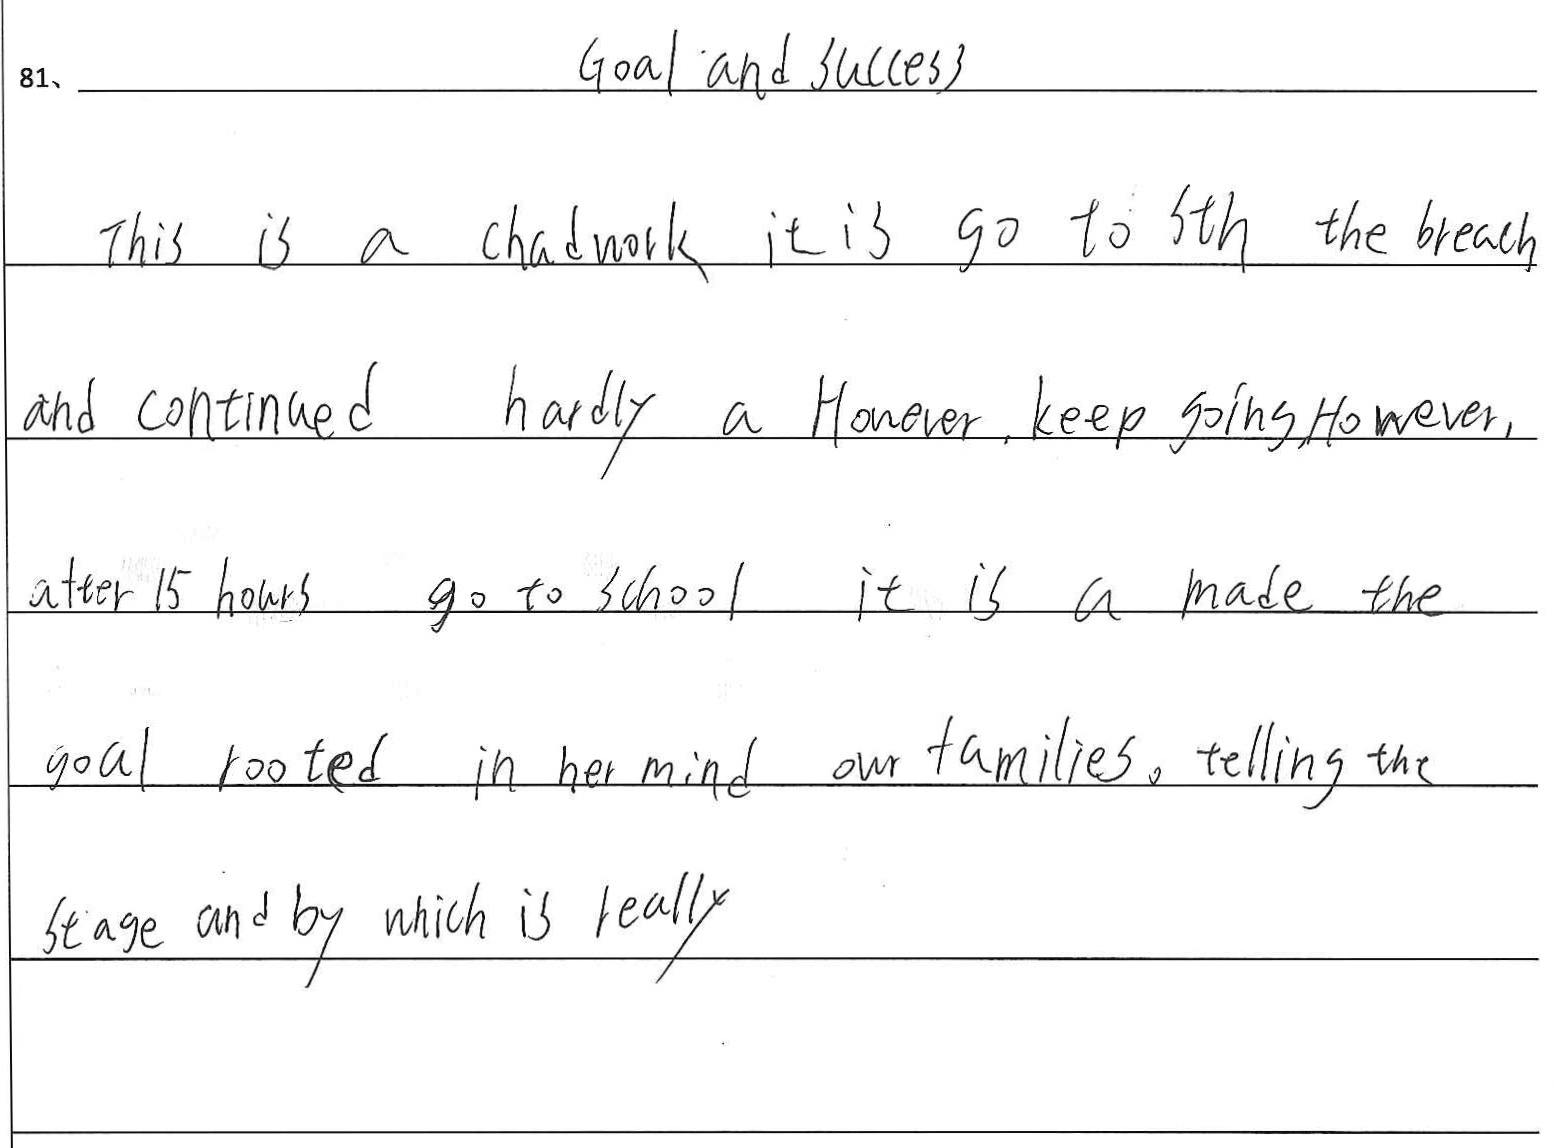 81、 Goal and success
This is a chadwork it is go to sth the breach
and continued hardly a Honever, keep going, However,
after 15 hours go to school it is a made the
goal rooted in her mind our families。 telling the
stage and by which is really